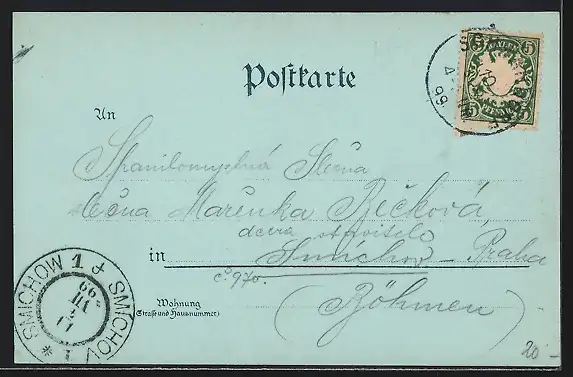 Postkarte
BAYERN
5 5
PFENNIG
99
An
Spanilomyslná Slečna
slečna Mařenka Bečková
dcera stavitele
in Smíchov - Praha
č 970.
(Böhmen)
Wohnung
(Straße und Hausnummer)
* SMICHOW 1 + SMÍCHOV 1
99
20-